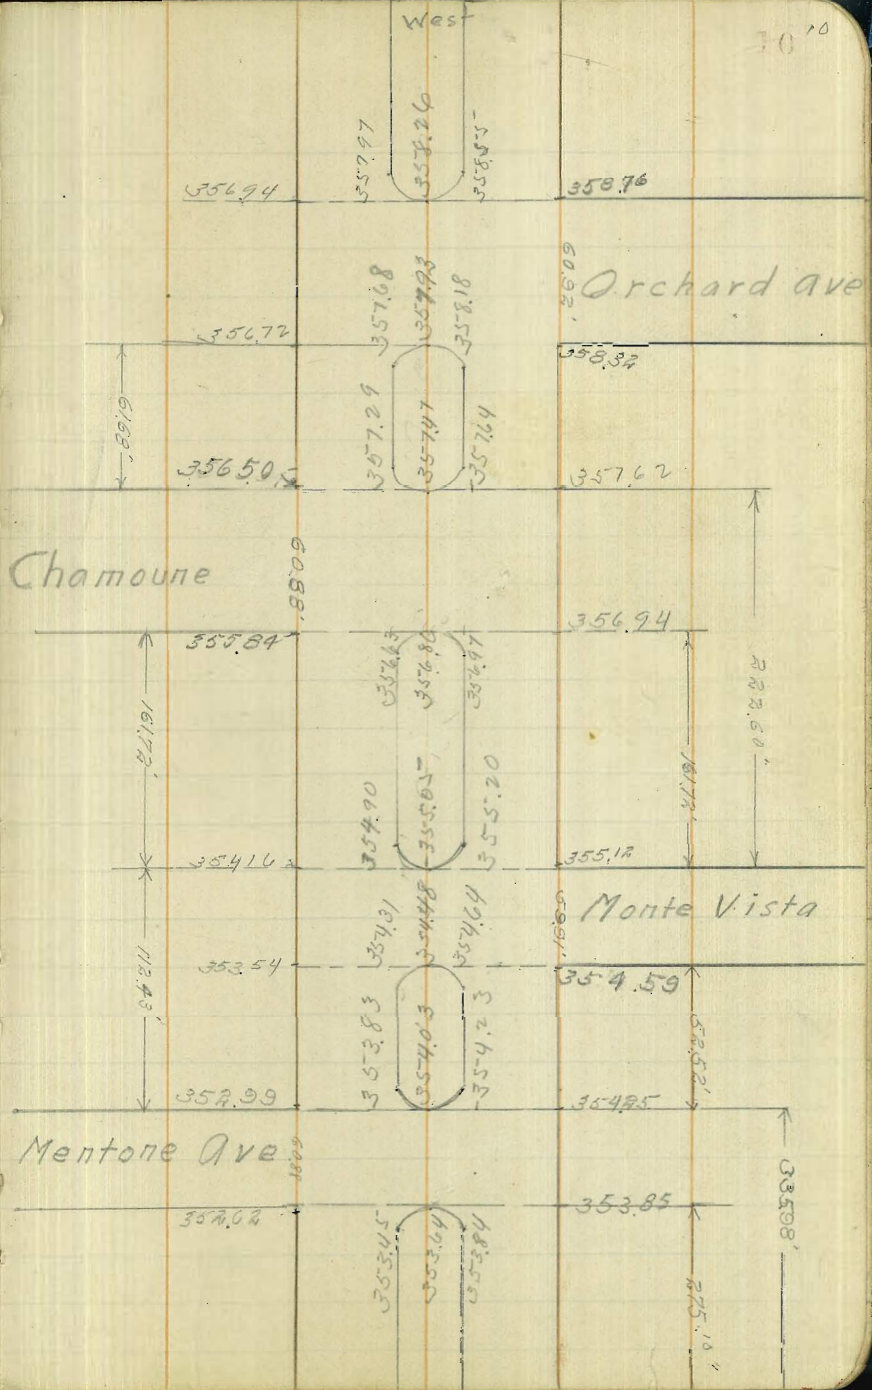 West
10
357.97
358.26
358.55
356.94
358.76
60.92'
Orchard Ave
357.68
357.93
358.18
356.72
358.32
61.68'
357.29
357.47
357.64
356.50
357.62
Chamoune
60.88'
355.84
356.63
356.80
356.97
356.94
161.72'
161.72'
222.60'
354.90
355.05
355.20
354.16
355.12
354.31
354.48
354.64
Monte Vista
353.54
354.59
112.43'
353.83
354.03
354.23
52.52'
352.99
354.25
Mentone Ave
60.81
335.98'
352.62
353.85
353.45
353.64
353.84
275.10"